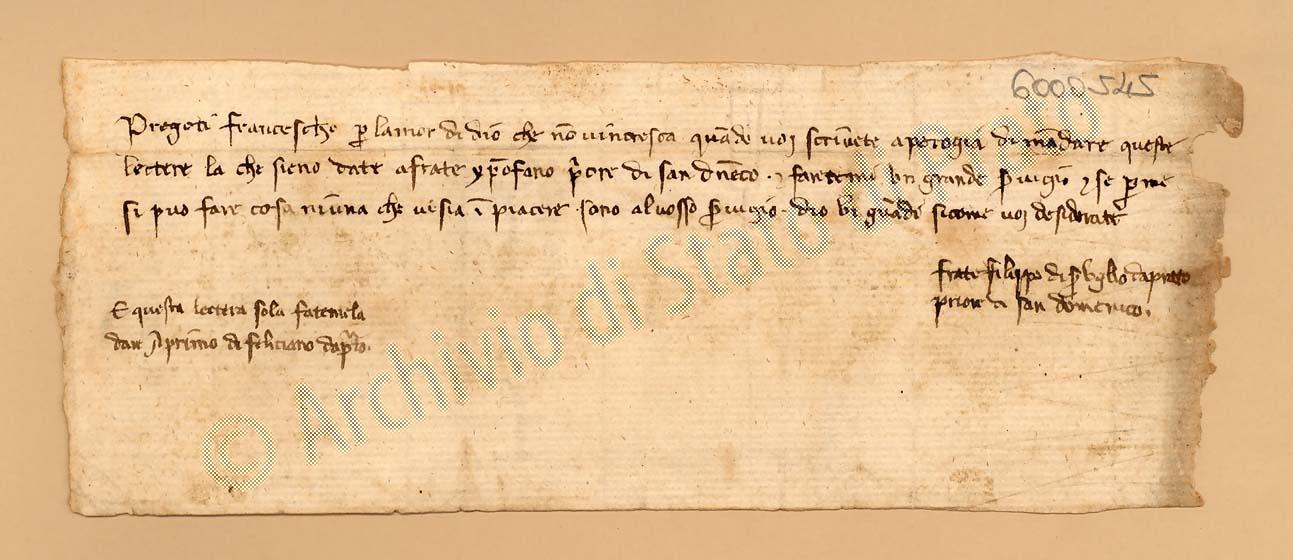 6000545
Pregoti francescho p lamor di dio che nō vincresca quādo voi scrivete a perogia di mādare queste
lectere la che sieno date a frate xpofano p̄ore di san dn̄eco · faretemi un grande s̄vigio e se p me
si puo fare cosa niuna che vi sia ī piacere sono al vosso s̄vigio · dio vi guādi sicome voi desiderate
frate filippo di s̄ da prato
priore di san domenico.
E questa lectera sola fatemela
dare a primo di feliciano da p̄to.
© Archivio di Stato di Prato